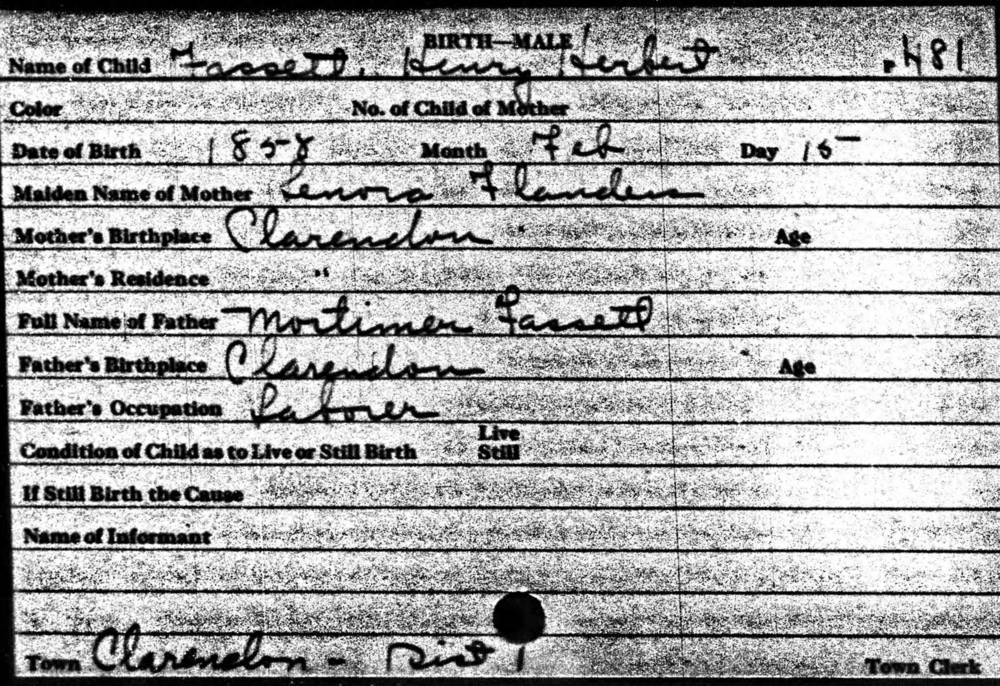 BIRTH—MALE
Name of Child Fassett, Henry Herbert .481
Color No. of Child of Mother
Date of Birth 1858 Month Feb Day 15
Maiden Name of Mother Lenora Flanders
Mother's Birthplace Clarendon Age
Mother's Residence "
Full Name of Father Mortimer Fassett
Father's Birthplace Clarendon Age
Father's Occupation Laborer
Live
Condition of Child as to Live or Still Birth Still
If Still Birth the Cause
Name of Informant
Town Clarendon - Dist 1 Town Clerk